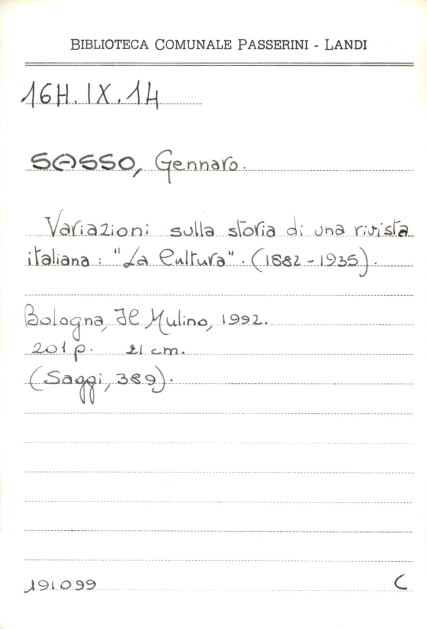 BIBLIOTECA COMUNALE PASSERINI - LANDI
16H.IX.14
SASSO, Gennaro.
Variazioni sulla storia di una rivista
italiana: "La Cultura". (1882-1935).
Bologna, Il Mulino, 1992.
201 p. 21 cm.
(Saggi, 389).
191099 C